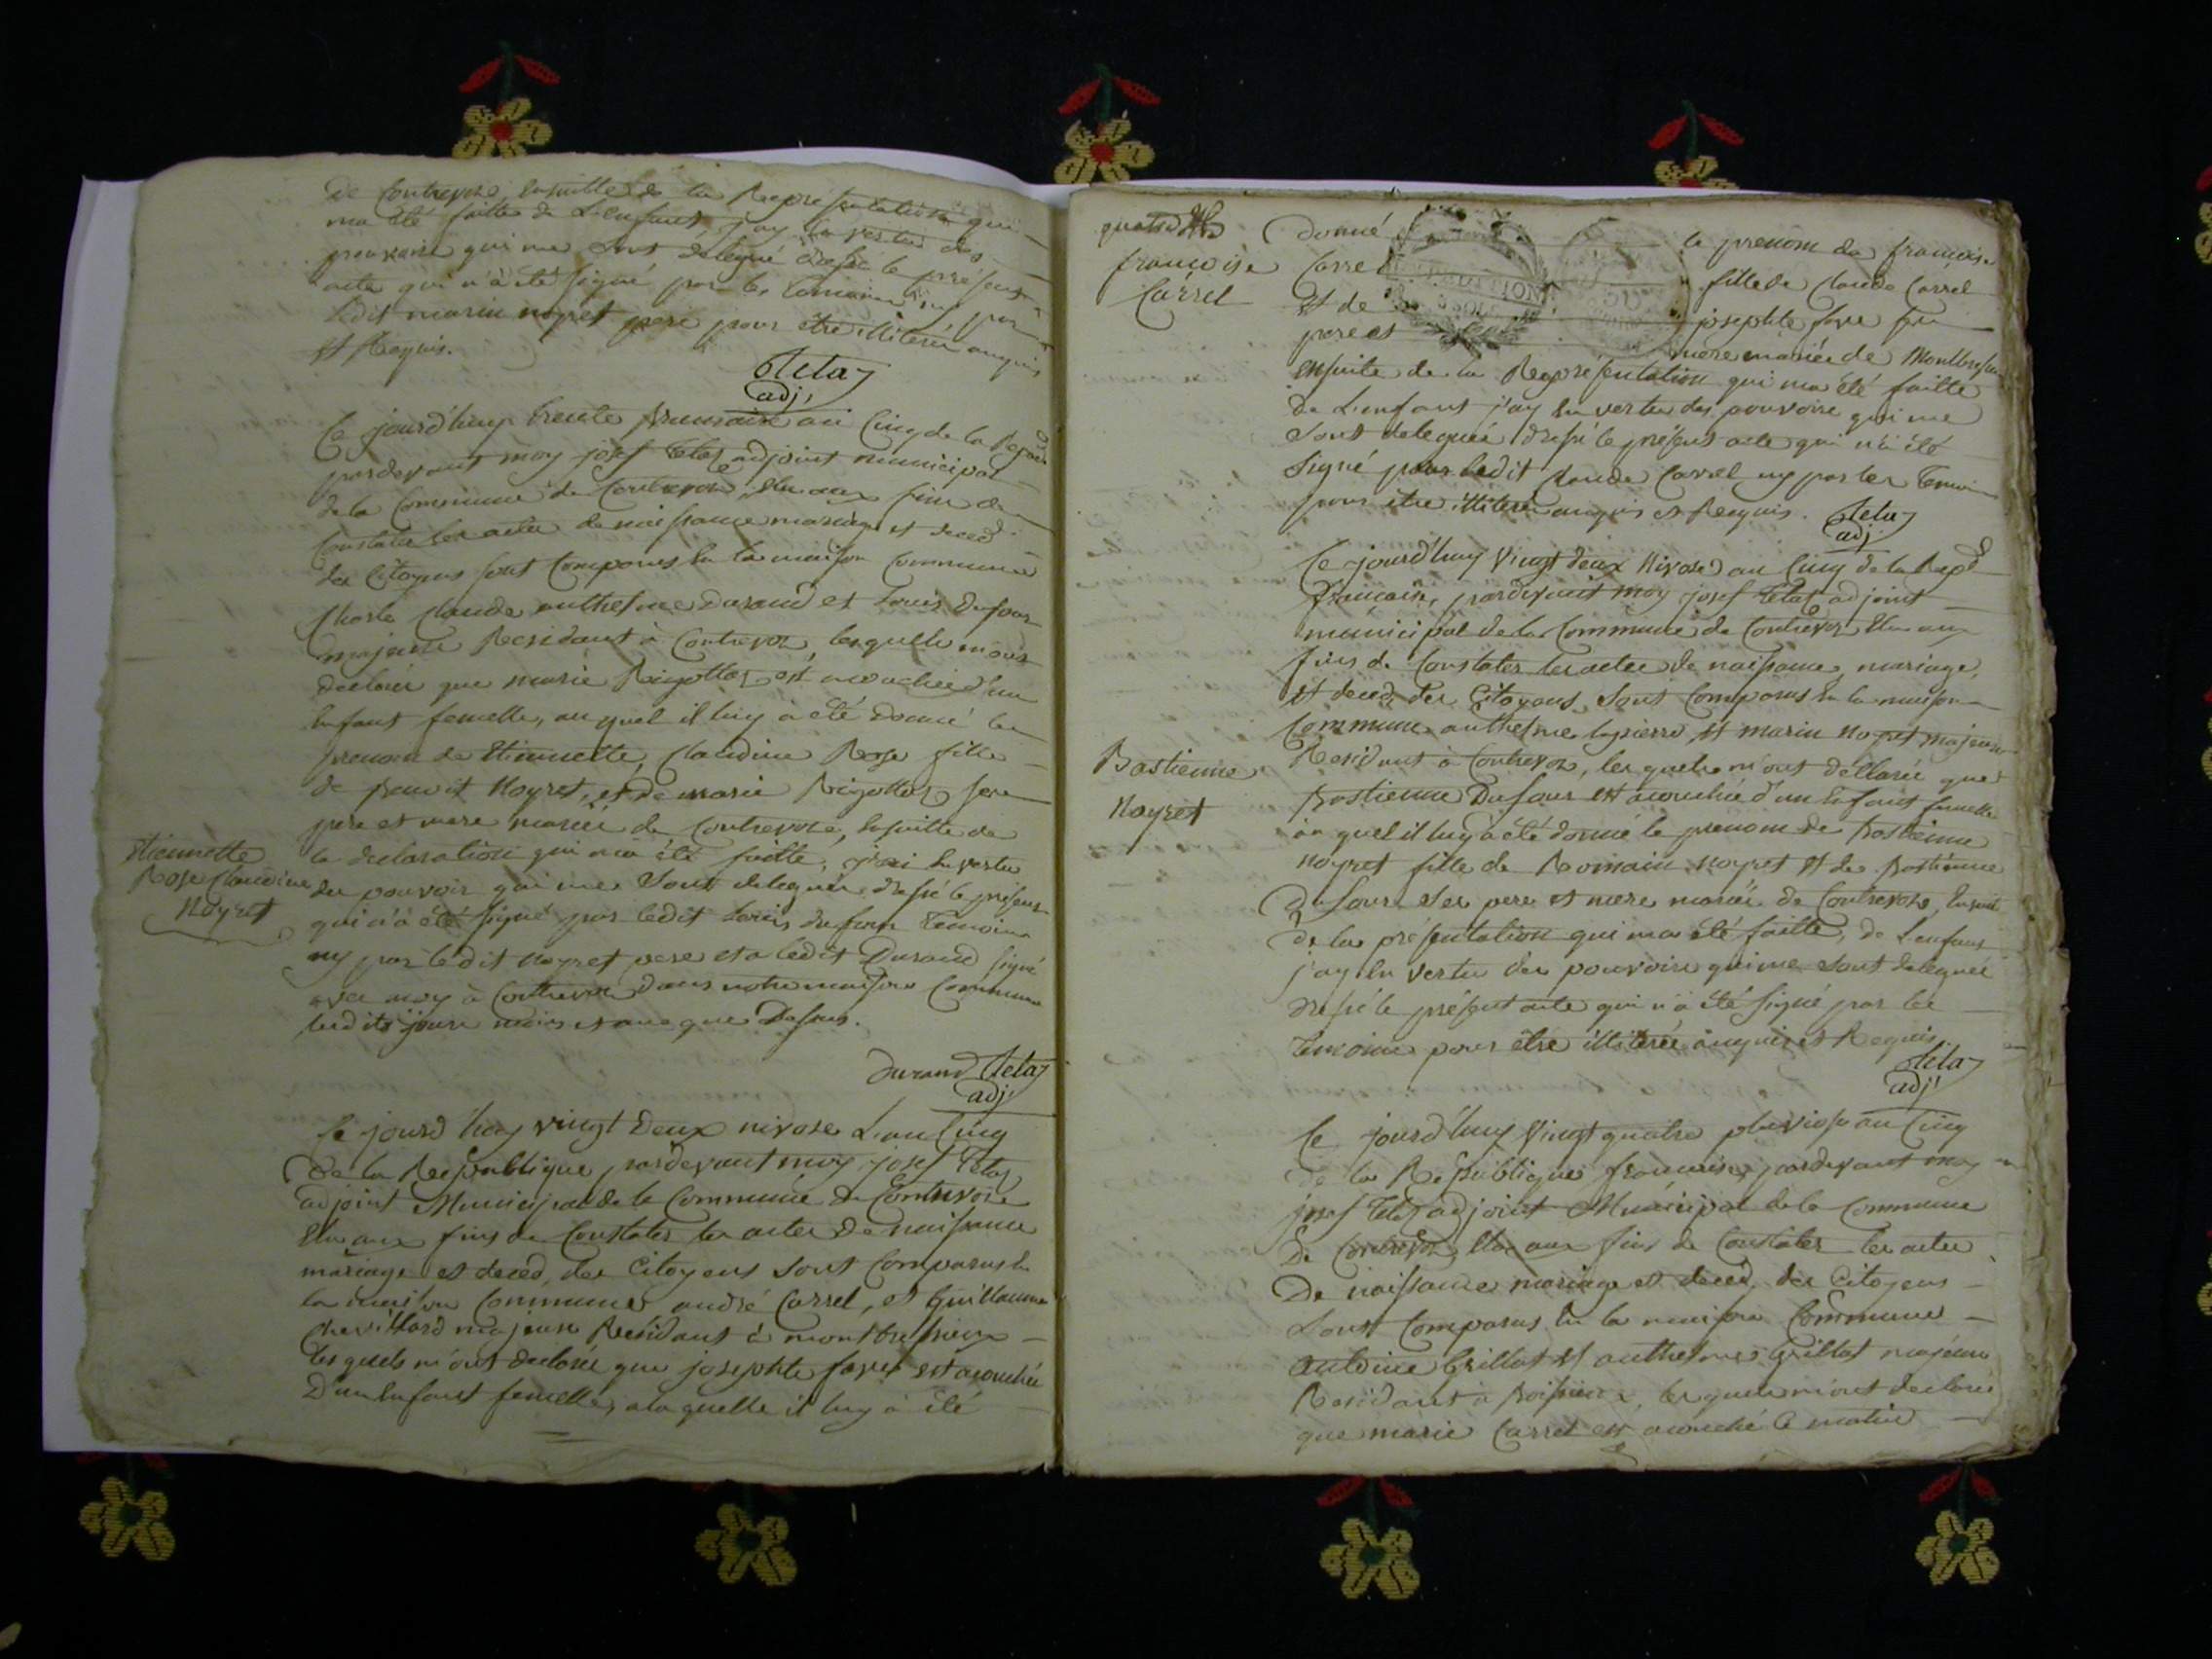 de Contrevoz, ensuitte de la Representation qui
ma été faitte de L'enfant, j'ay en vertu des
pouvoirs qui me sont delegué dressé le présent
acte qui n'à été signé par les temoins ny par
ledit marin noyret pere pour être illiteré enquis
et Requis.
tetaz
adj,
Ce jourd'huy trente frimaire an Cinq de la Repub
pardevant moy josef tetaz adjoint municipal
de la Commune de Contrevoz, elu aux fins de
Constater les actes de naissance mariage et deced
des Citoyens sont Comparus en la maison Commune
Charle Claude anthelme Durand et Louis Dufour
majeurs Residants à Contrevoz, lesquells m'ont
declaré que marie Rigottaz est acouchée d'un
Enfant femelle, au quel il luy à été donné le
prenom de Etiennette, Claudine Rose fille
de Benoit Noyret, et de marie Rigottaz ses
pere et mere mariés de Contrevoz, ensuitte de
la declaration qui m'a été faitte, j'ai en vertu
des pouvoir qui me sont delegués dressé le présent
qui n'à été signé par ledit Louis dufour Temoins
ny par ledit Noyret pere et a ledit Durand signé
avec moy à Contrevoz dans notre maison Commune
lesdits jours mois et ans que Dessus.
Etiennette
Rose Claudine
Noyret
Durand tetaz
adj,
Ce jourd'huy vingt Deux nivose L'an Cinq
De la Republique, pardevant moy josef Tetaz
adjoint Municipal de la Commune de Contrevoz
Elu aux fins de Constater les actes de naissance
mariage et deced, des Citoyens sont Comparus en
la maison Commune andré Carrel, et Guillaume
Chevillard majeurs Residants à montbressieux
les quels m'ont declaré que josephte favre est acouchée
D'un Enfant femelle, a la quelle il luy à été
quatre
françoise
Carrel
Donné le prenom de françoise
Carrel fille de Claude Carrel
et de josephte favre ses
pere et mere mariés de
Ensuite de la Représentation qui ma été faitte
de L'enfant j'ay en vertu des pouvoirs qui me
sont delegués dressé le présent acte qui n'à été
signé par ledit Claude Carrel ny par les Temoins
pour être illiteré enquis et Requis. tetaz
adj
Ce jourd'huy Vingt deux Nivose an Cinq de la Repub
française, pardevant moy josef tetaz adjoint
municipal de la Commune de Contrevoz Elu aux
fins de Constater les actes de naissance, mariage,
et deced, des Citoyens, sont Comparus en la maison
Commune anthelme lapierre, et marin noyret majeurs
Residants à Contrevoz, les quels m'ont déclaré que
Bastienne Dufour est acouchée d'un Enfant femelle
au quel il luy à été donné le prenom de Bastienne
noyret fille de Romain noyret et de Bastienne
Dufour ses pere et mere mariés de Contrevoz, ensuitte
De la présentation qui ma été faitte, de L'enfant
j'ay en vertu des pouvoirs qui me sont delegués
dressé le présent acte qui n'à été signé par les
temoins pour être illiterés enquis et Requis.
Bastienne
Noyret
tetaz
adj,
Ce jourd'huy Vingt quatre pluviose an Cinq
de la Republique française, pardevant moy
josef Tetaz adjoint Municipal de la Commune
De Contrevoz, Elu aux fins de Constater les actes
De naissance mariage et deced, des Citoyens
sont Comparus en la maison Commune
antoine Grillot et anthelme Grillot majeurs
Residants à, les quels m'ont declaré
que marie Carrel est acouché le matin